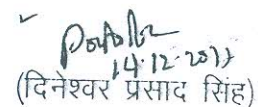 14.12.2017
(दिनेश्वर प्रसाद सिंह)